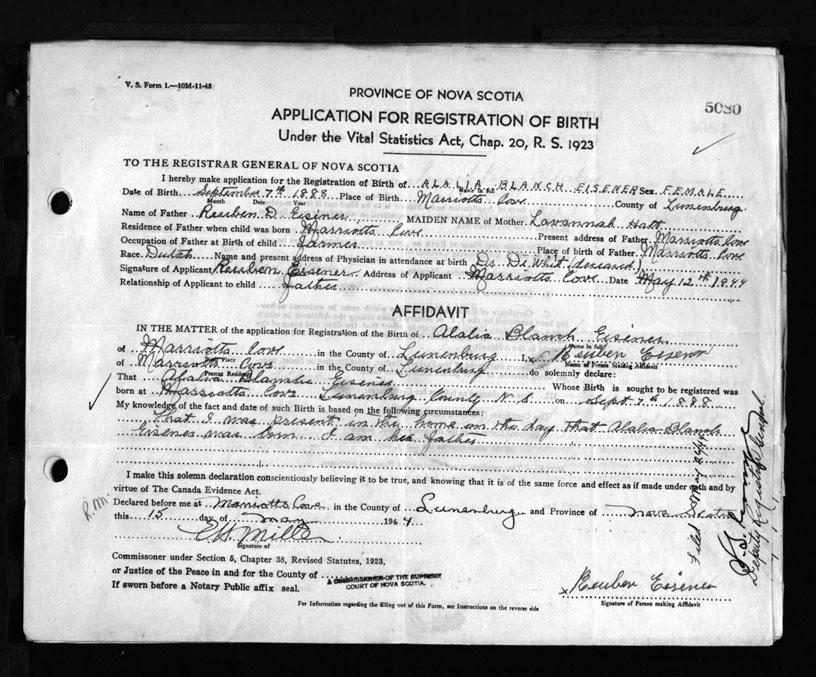 V. S. Form 1.—10M-11-43
PROVINCE OF NOVA SCOTIA
5080
APPLICATION FOR REGISTRATION OF BIRTH
Under the Vital Statistics Act, Chap. 20, R. S. 1923
TO THE REGISTRAR GENERAL OF NOVA SCOTIA
I hereby make application for the Registration of Birth of ALALIA BLANCH EISENER Sex FEMALE
Name in full
Date of Birth September 7th 1888 Place of Birth Marriotts Cove County of Lunenburg
Month Date Year
Name of Father Reuben D. Eisener MAIDEN NAME of Mother Lavannah Hatt
Residence of Father when child was born Marriotts Cove Present address of Father Marriotts Cove
Occupation of Father at Birth of child farmer Place of birth of Father Marriotts Cove
Race Dutch Name and present address of Physician in attendance at birth Dr. De Whit (deceased)
Signature of Applicant Reuben Eisener Address of Applicant Marriotts Cove Date May 12th 1944
Relationship of Applicant to child father
AFFIDAVIT
IN THE MATTER of the application for Registration of the Birth of Alalia Blanch Eisener
Name in full
of Marriotts Cove in the County of Lunenburg I, x Reuben Eisener
Birth Place Name of Person Making Affidavit
of Marriotts Cove in the County of Lunenburg do solemnly declare:
Present Residence
That Alalia Blanche Eisener Whose Birth is sought to be registered was
born at Marriotts Cove Lunenburg County N. S. on Sept 7th 1888
My knowledge of the fact and date of such Birth is based on the following circumstances:
That I was present in the home on the day that Alalia Blanch
Eisener was born. I am her father
I make this solemn declaration conscientiously believing it to be true, and knowing that it is of the same force and effect as if made under oath and by
virtue of The Canada Evidence Act.
R.M.
Declared before me at Marriotts Cove in the County of Lunenburg and Province of Nova Scotia
this 15 day of May 1944
C H Miller
Signature of
Commissioner under Section 5, Chapter 38, Revised Statutes, 1923,
or Justice of the Peace in and for the County of
A COMMISSIONER OF THE SUPREME
COURT OF NOVA SCOTIA
If sworn before a Notary Public affix seal.
x Reuben Eisener
Signature of Person making Affidavit
For Information regarding the filling out of this Form, see Instructions on the reverse side
Filed May 26/44
Deputy Registrar General